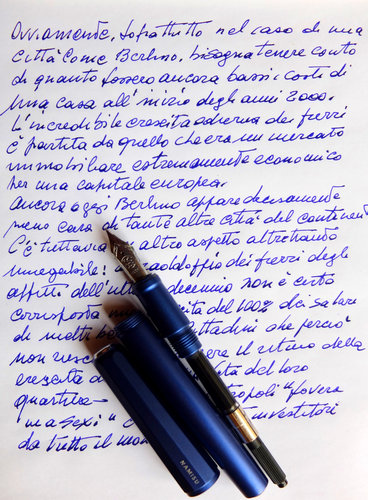 Ovviamente, soprattutto nel caso di una
città come Berlino, bisogna tenere conto
di quanto fossero ancora bassi i costi di
una casa all'inizio degli anni 2000.
L'incredibile crescita odierna dei prezzi
è partita da quello che era un mercato
immobiliare estremamente economico
per una capitale europea.
Ancora oggi Berlino appare decisamente
meno cara di tante altre città del continente
C'è tuttavia altro aspetto altrettanto
innegabile: raddoppio dei prezzi degli
affitti dell' decennio non è certo
corrisposta del 100% dei salari
di molti cittadini che perciò
non il ritmo della
crescita del loro
quartiere "povera
ma sexy" investitori
da tutto il
NAMISU